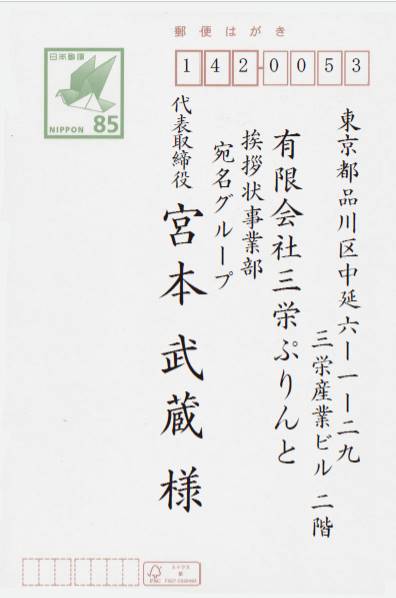 郵便はがき
日本郵便
NIPPON 85
142-0053
東京都品川区中延六ー一ー二九
三栄産業ビル 二階
有限会社三栄ぷりんと
挨拶状事業部
宛名グループ
代表取締役
宮本 武蔵 様
ミックス
紙
FSC